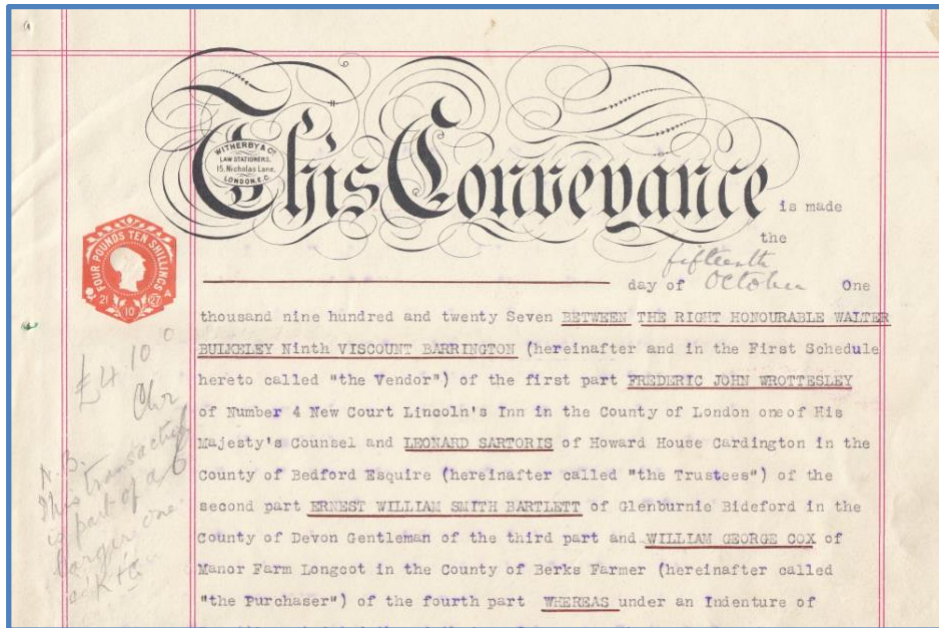 This Conveyance is made
WITHERBY & Co
LAW STATIONERS,
15, Nicholas Lane,
LONDON. E.C.
the
fifteenth
day of October One
FOUR POUNDS TEN SHILLINGS
21 10 27
thousand nine hundred and twenty Seven BETWEEN THE RIGHT HONOURABLE WALTER
BULKELEY Ninth VISCOUNT BARRINGTON (hereinafter and in the First Schedule
hereto called "the Vendor") of the first part FREDERIC JOHN WROTTESLEY
of Number 4 New Court Lincoln's Inn in the County of London one of His
Majesty's Counsel and LEONARD SARTORIS of Howard House Cardington in the
County of Bedford Esquire (hereinafter called "the Trustees") of the
second part ERNEST WILLIAM SMITH BARTLETT of Glenburnie Bideford in the
County of Devon Gentleman of the third part and WILLIAM GEORGE COX of
Manor Farm Longcot in the County of Berks Farmer (hereinafter called
"the Purchaser") of the fourth part WHEREAS under an Indenture of
£4 10 0
N.B.
This transaction
is part of a
larger one